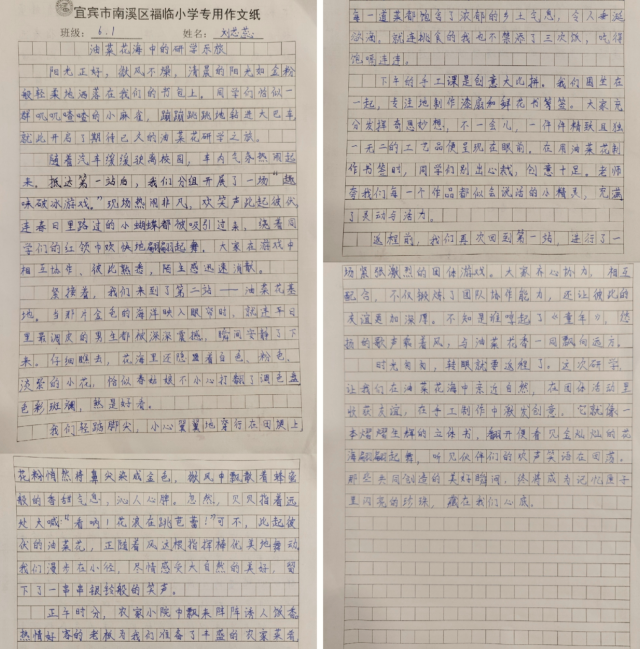 宜宾市南溪区福临小学专用作文纸
班级: 6.1 姓名:
油菜花海中的研学乐旅
阳光正好，微风不燥，清晨的阳光如金粉
般轻柔地洒落在我们的书包上。同学们恰似一
群叽叽喳喳的小麻雀，蹦蹦跳跳地钻进大巴车，
就此开启了期待已久的油菜花研学之旅。
随着汽车缓缓驶离校园，车内气氛热闹起
来。抵达第一站后，我们分组开展了一场“趣
味破冰游戏。”现场热闹非凡，欢笑声此起彼伏
连春日里路过的小蝴蝶都被吸引过来，绕着同
学们的红领巾欢快地翩翩起舞。大家在游戏中
相互协作，彼此熟悉，陌生感迅速消散。
紧接着，我们来到了第二站——油菜花基
地。当那片金色的海洋映入眼帘时，就连平日
里最调皮的男生都被深深震撼，瞬间安静了下
来。仔细瞧去，花海里还隐藏着白色、粉色、
淡紫的小花，恰似春姑娘不小心打翻了调色盘
色彩斑斓，煞是好看。
我们轻踮脚尖，小心翼翼地穿行在田埂上
花粉悄然将鼻尖染成金色，微风中飘散着蜂蜜
般的香甜气息，沁人心脾。忽然，贝贝指着远
处大喊“看呐！花浪在跳芭蕾！”可不，此起彼
伏的油菜花，正随着风这根指挥棒优美地舞动
我们漫步在小径，尽情感受大自然的美好，留
下了一串串银铃般的笑声。
正午时分，农家小院中飘来阵阵诱人饭香
热情好客的老板为我们准备了丰盛的农家菜肴，
每一道菜都饱含了浓郁的乡土气息，令人垂涎
欲滴，就连挑食的我也不禁添了三次饭，吃得
饱嗝连连。
下午的手工课是创意大比拼。我们围坐在
一起，专注地制作漆扇和鲜花书签。大家充
分发挥奇思妙想，不一会儿，一件件精致且独
一无二的工艺品便呈现在眼前，在用油菜花制
作书签时，同学们别出心裁，创意十足。老师
夸我们每一个作品都似会说话的小精灵，充满
了灵动与活力。
返程前，我们再次回到第一站，进行了一
场紧张激烈的团体游戏。大家齐心协力，相互
配合，不仅锻炼了团队协作能力，还让彼此的
友谊更加深厚。不知是谁哼起了《童年》，悠
扬的歌声乘着风，与油菜花香一同飘向远方。
时光匆匆，转眼就要返程了。这次研学，
让我们在油菜花海中亲近自然，在团体活动里
收获友谊，在手工制作中激发创意。它就像一
本熠熠生辉的立体书，翻开便看见金灿灿的花
海翩翩起舞，听见伙伴们的欢声笑语在回荡。
那些共同创造的美好瞬间，终将成为记忆匣子
里闪亮的珍珠，藏在我们心底。